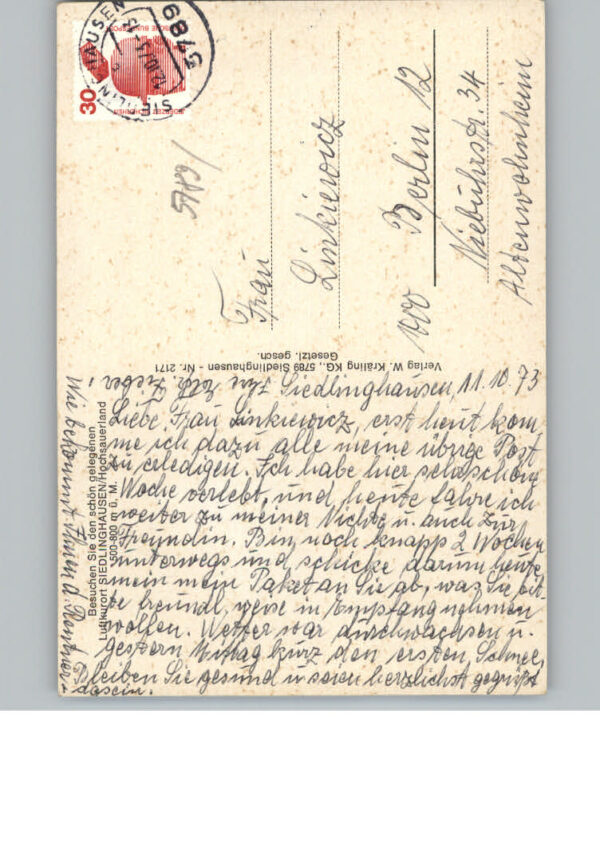 Siedlinghausen, 11.10.73
Liebe Frau Linkiewicz, erst heut kom-
me ich dazu alle meine übrige Post
zu erledigen. Ich habe hier schon
Woche verlebt, und heute fahre ich
weiter zu meiner Nichte u. auch zur
Freundin. Bin noch knapp 2 Wochen
unterwegs und schicke darum heute
mein Paket an Sie ab, was Sie bit-
te freundl. weise in Empfang nehmen
wollen. Wetter war durchwachsen u.
gestern Mittag kurz den ersten Schnee.
Bleiben Sie gesund u seien herzlichst gegrüßt
Wie bekommt Ihnen d. Rentner-
dasein.
Ihre
Besuchen Sie den schön gelegenen
Luftkurort SIEDLINGHAUSEN/Hochsauerland
500-800 m ü. M.
Verlag W. Kräling KG., 5789 Siedlinghausen - Nr. 2171
Gesetzl. gesch.
Frau
Linkiewicz
Berlin 12
Niebuhrstr. 34
Altenwohnheim
5789
SIEDLINGHAUSEN
30